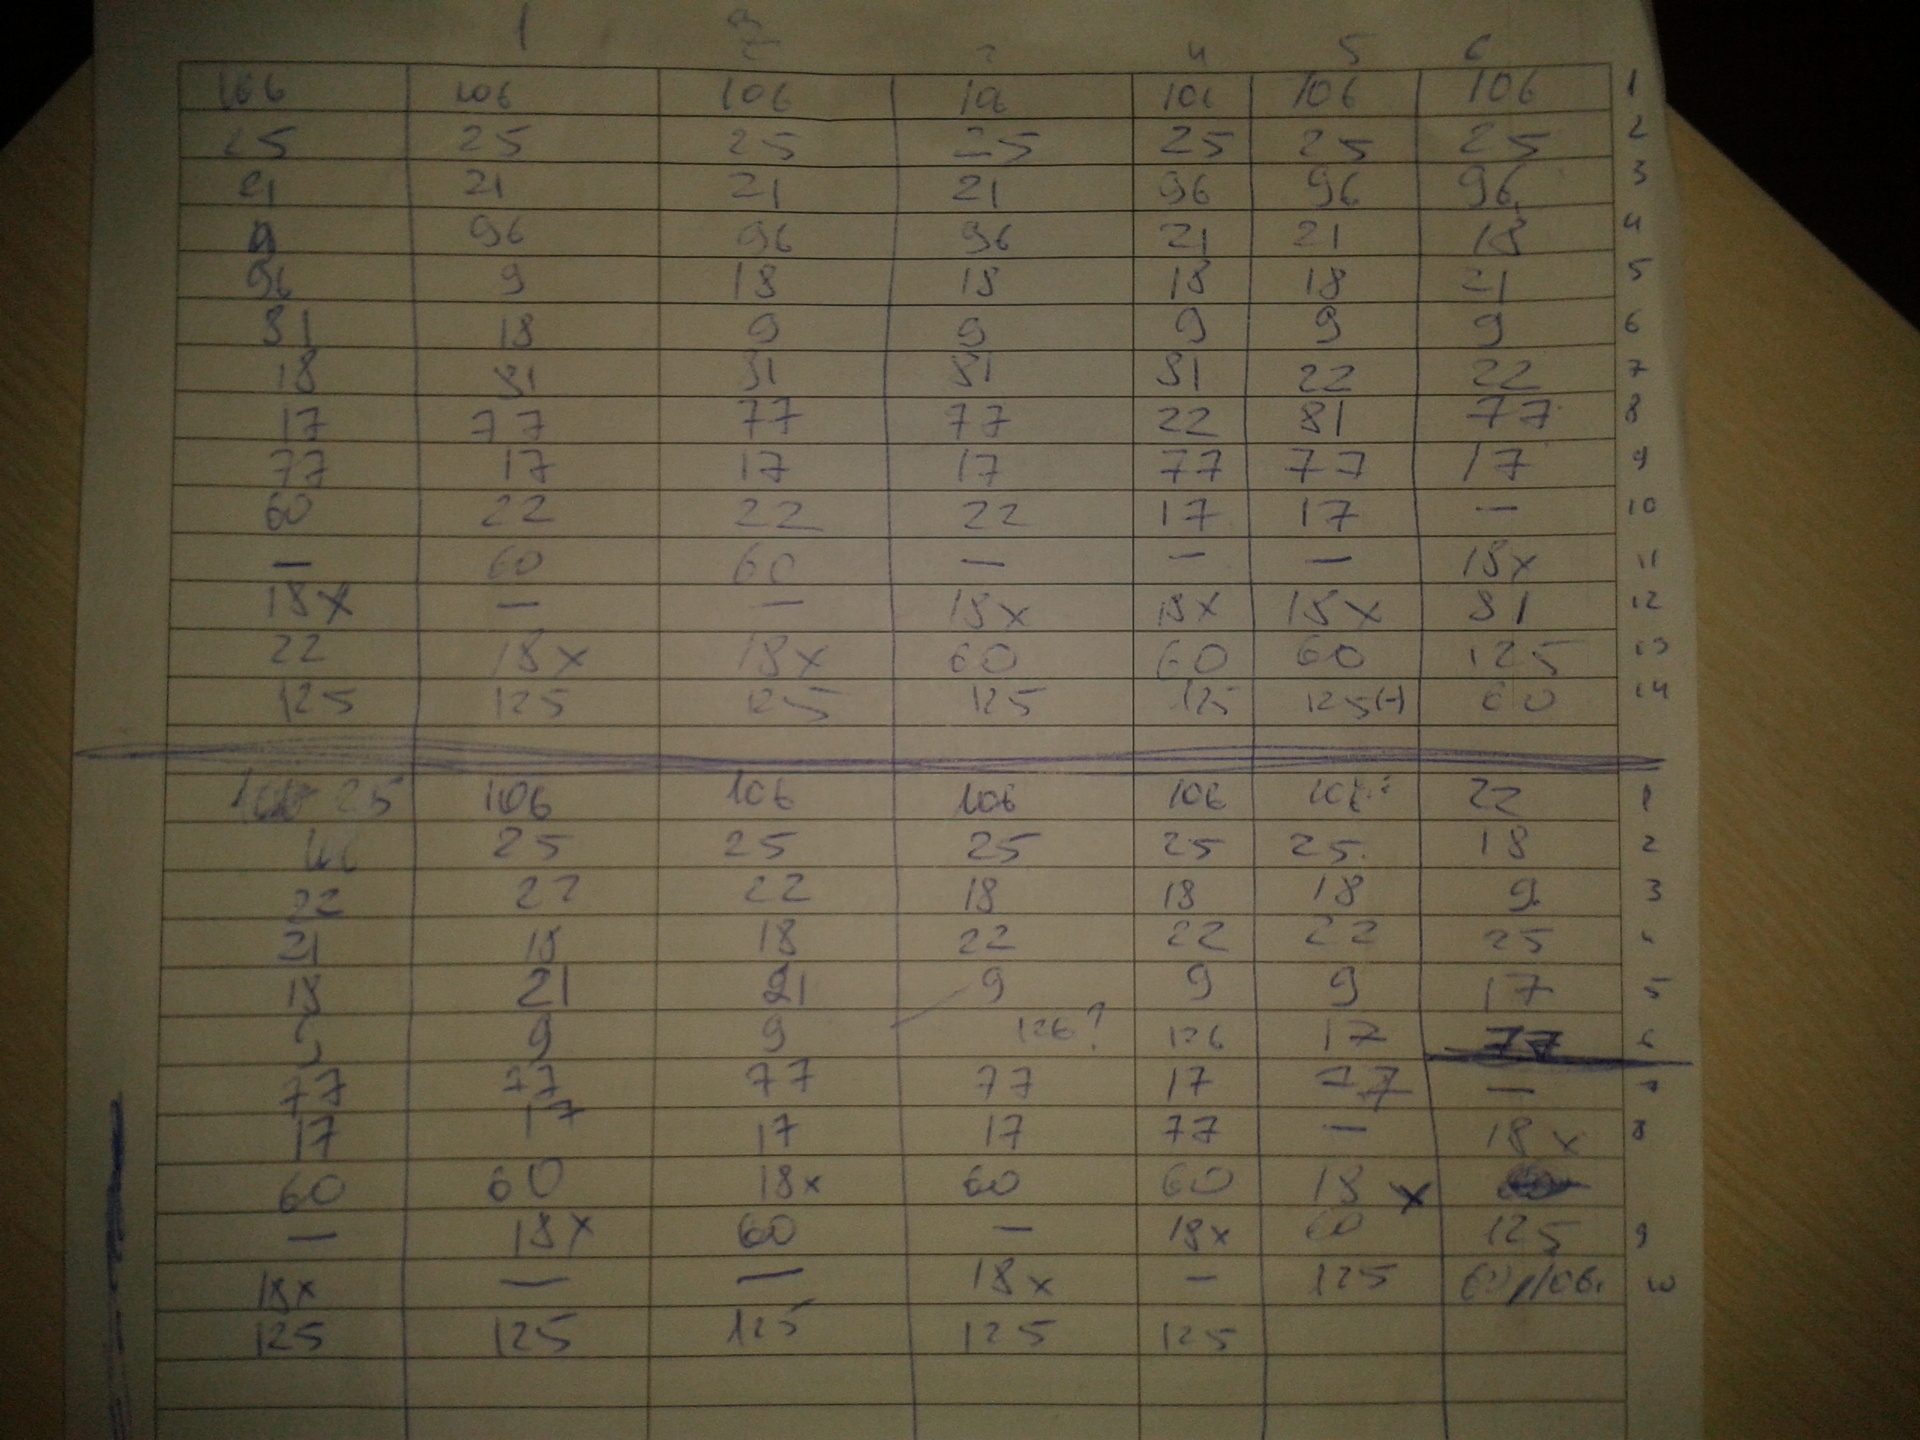 1 2 3 4 5 6
106 106 106 10 106 106 106 1
25 25 25 25 25 25 25 2
21 21 21 21 96 96 96 3
9 96 96 96 21 21 18 4
96 9 18 18 18 18 21 5
81 18 9 9 9 9 9 6
18 81 81 81 81 22 22 7
17 77 77 77 22 81 77 8
77 17 17 17 77 77 17 9
60 22 22 22 17 17 — 10
— 60 60 — — — 18x 11
18x — — 18x 18x 18x 81 12
22 18x 18x 60 60 60 125 13
125 125 125 125 125 125(-) 60 14
25 106 106 106 106 106 22 1
106 25 25 25 25 25 18 2
22 22 22 18 18 18 9 3
21 18 18 22 22 22 25 4
18 21 21 9 9 9 17 5
9 9 9 126? 126 17 77 6
77 77 77 77 17 77 — 7
17 17 17 17 77 — 18x 8
60 60 18x 60 60 18x
— 18x 60 — 18x 60 125 9
18x — — 18x — 125 10
125 125 125 125 125